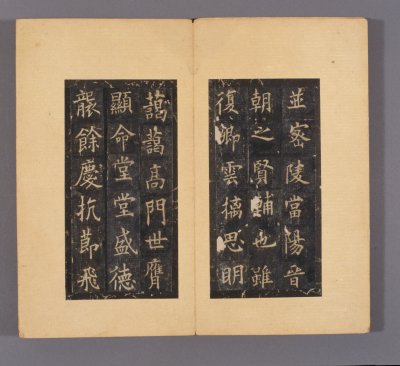 並宻陵當陽晉
朝之賢輔也雖
復卿雲摛思明
藹藹高門世膺
顯命堂堂盛德
襲餘慶抗節飛